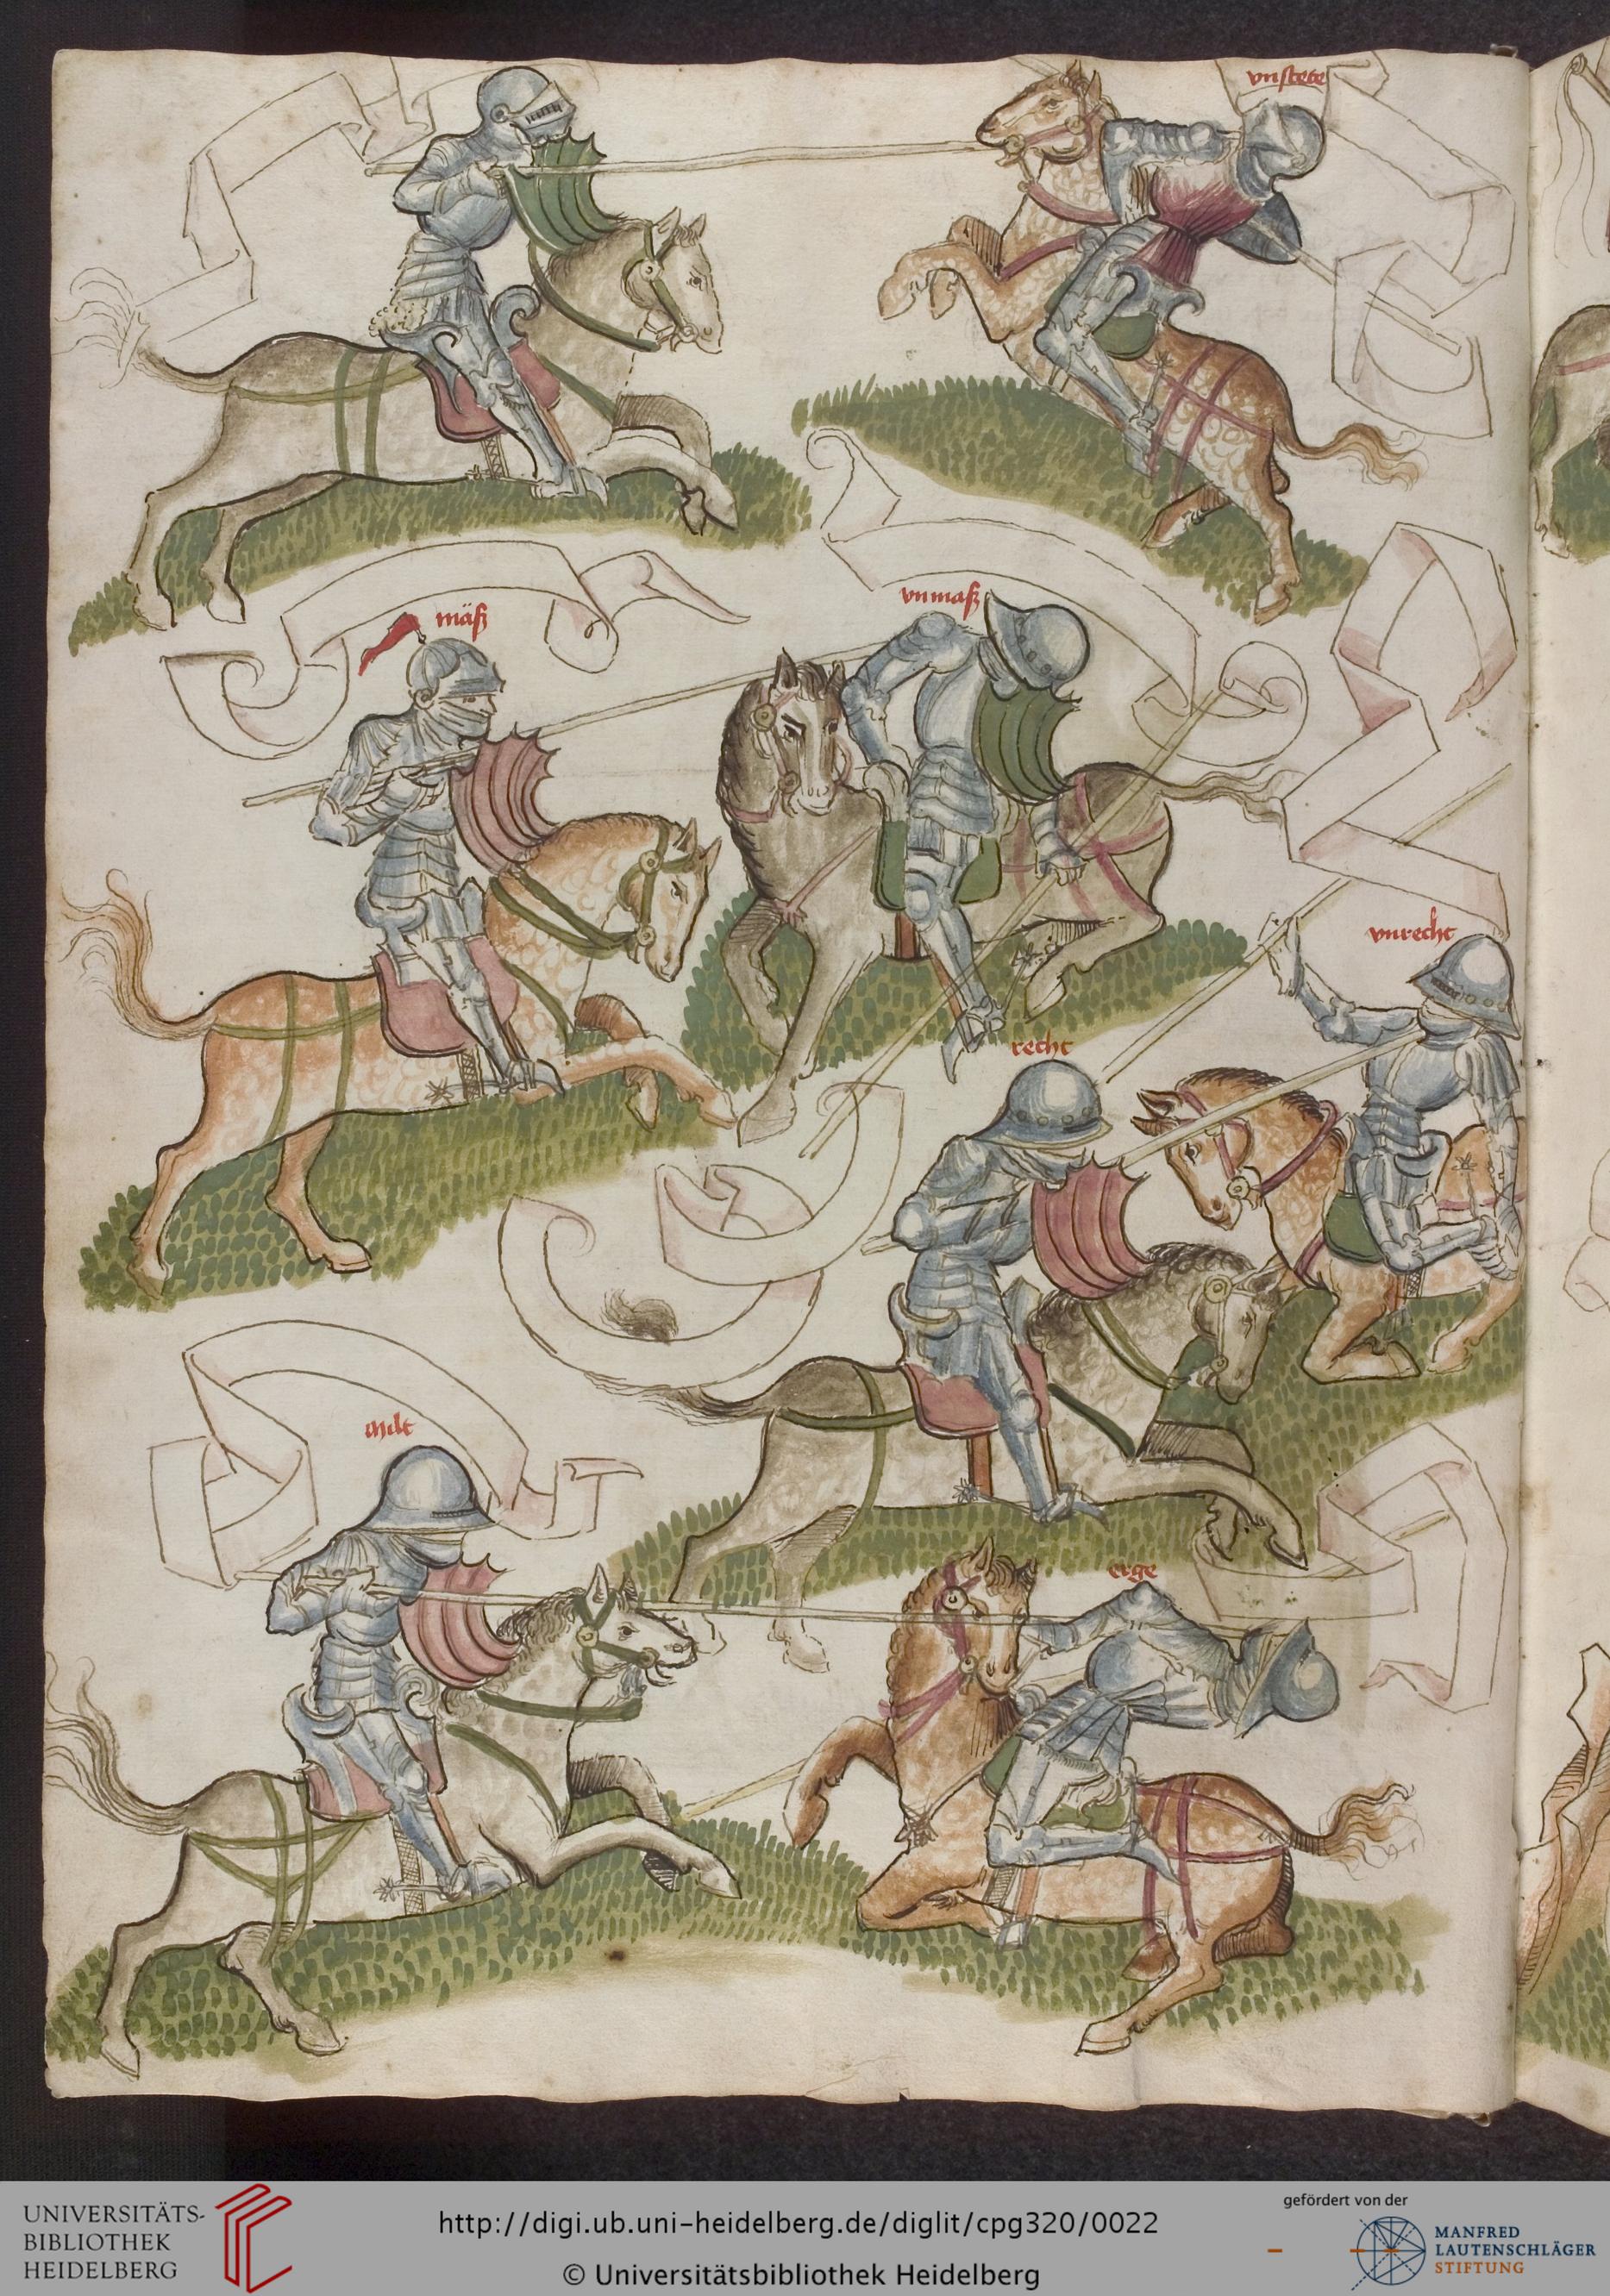 vnstete
mäß
vnmaß
vnrecht
recht
Milt
erge
UNIVERSITÄTS-
BIBLIOTHEK
HEIDELBERG
http://digi.ub.uni-heidelberg.de/diglit/cpg320/0022
© Universitätsbibliothek Heidelberg
gefördert von der
MANFRED
LAUTENSCHLÄGER
STIFTUNG